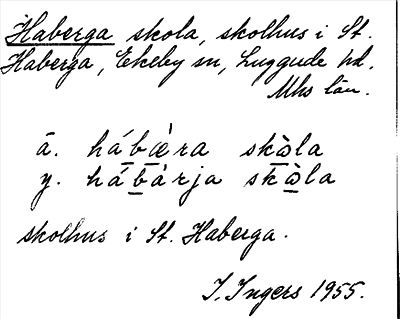 Haberga skola, skolhus i St.
Haberga, Ekeby sn, Luggude hd,
Mhs län.
ä. hábæ̀ra skà̱la
y. há̱ḇárja skà̱la
skolhus i St. Haberga.
I. Ingers 1955.